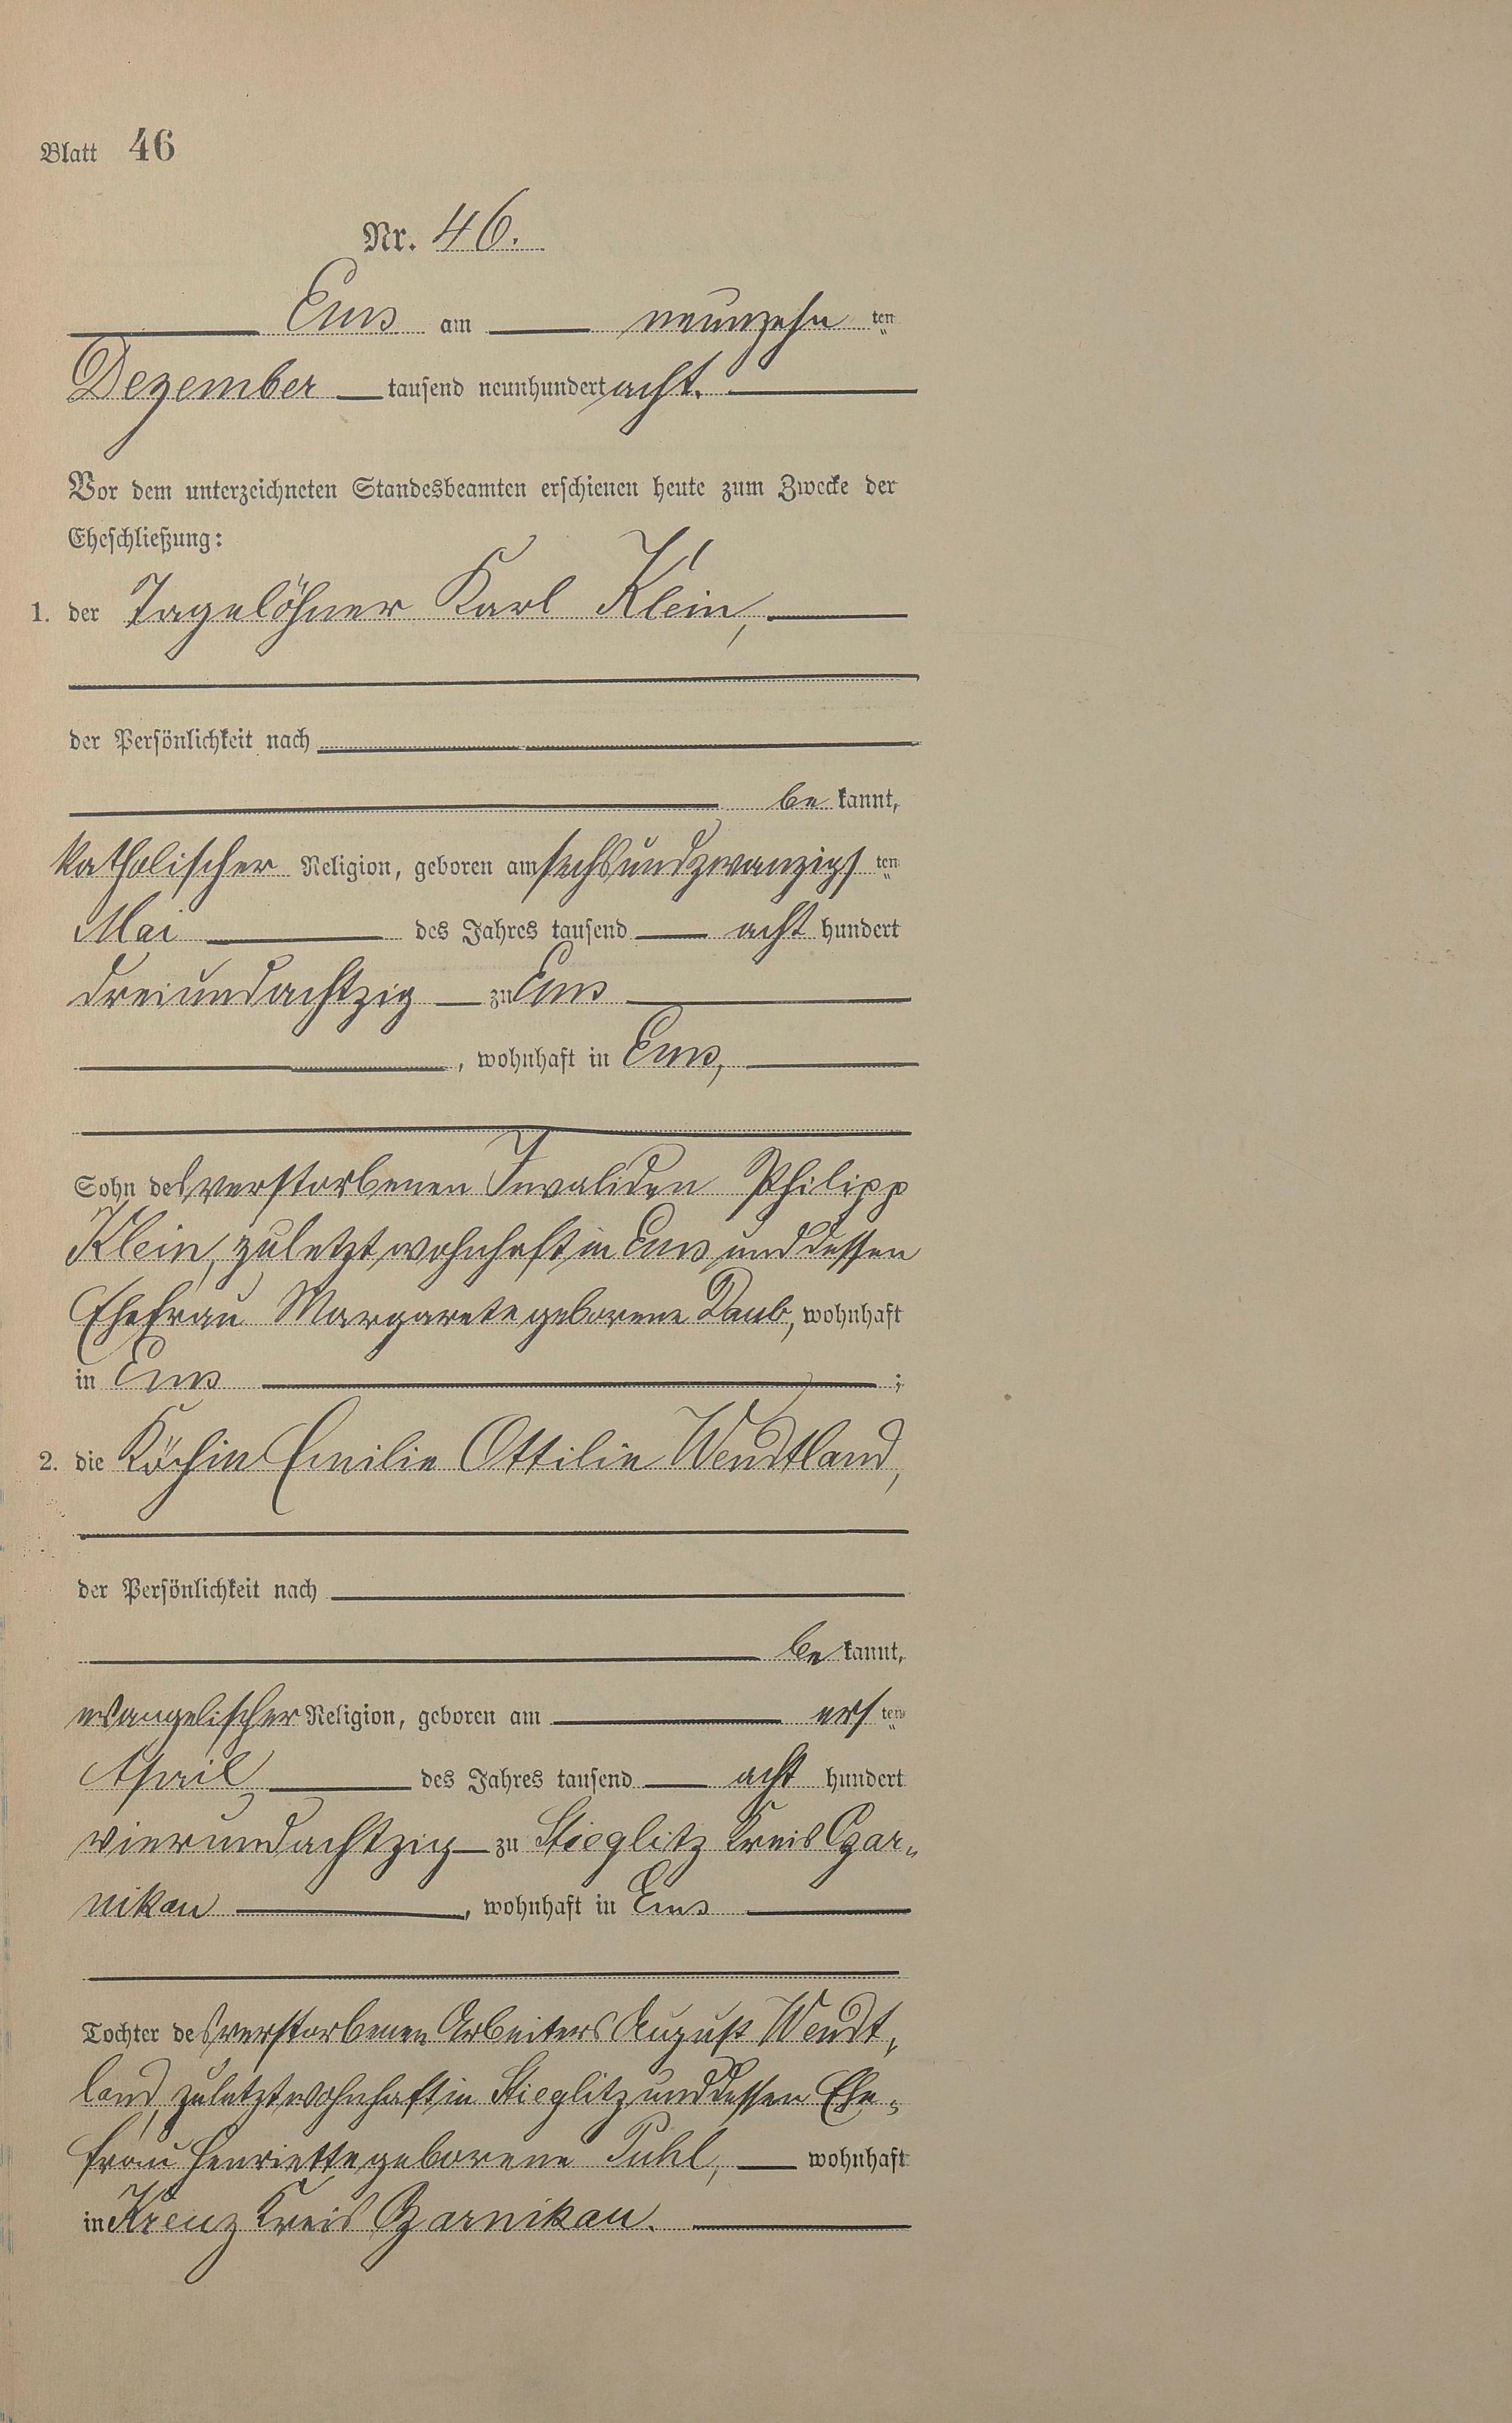 Blatt 46
Nr. 46.
Ems am neunzehn ten
Dezember tausend neunhundert acht.
Vor dem unterzeichneten Standesbeamten erschienen heute zum Zwecke der
Eheschließung:
1. der Tagelöhner Karl Klein,
der Persönlichkeit nach
be kannt,
katholischer Religion, geboren am sechsundzwanzigs ten
Mai des Jahres tausend acht hundert
dreiundachtzig zu Ems
, wohnhaft in Ems,
Sohn des verstorbenen Invaliden Philipp
Klein, zuletzt wohnhaft in Ems und dessen
Ehefrau Margarete geborene Daub, wohnhaft
in Ems ;
2. die Köchin Emilie Ottilie Wendtland,
der Persönlichkeit nach
be kannt,
evangelischer Religion, geboren am ers ten
April des Jahres tausend acht hundert
vierundachtzig zu Stieglitz Kreis Czar-
nikau , wohnhaft in Ems
Tochter des verstorbenen Arbeiters August Wendt-
land, zuletzt wohnhaft in Stieglitz und dessen Ehe-
frau Henriette geborene Puhl, wohnhaft
in Kreuz Kreis Czarnikau.